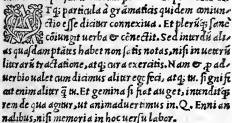 Tq; particula à gramaticis quidem coniun-
ctio esse dicitur connexiua. Et plerūq; sanè
coiungit uerba & cōnectit. Sed interdū ali-
as quasdam ptātes habet non satis notas, nisi in ueterū
litterarū tractatione, atq; cura exercitis. Nam & p ad-
uerbio ualet cum dicimus aliter ego feci, atq; tu. signifi
cat enim aliter q̃ tu. Et gemina si fiat auget, intenditq;
rem de qua agitur, ut animaduertimus in. Q. Enni an
nalibus, nisi memoria in hoc uersu labor.